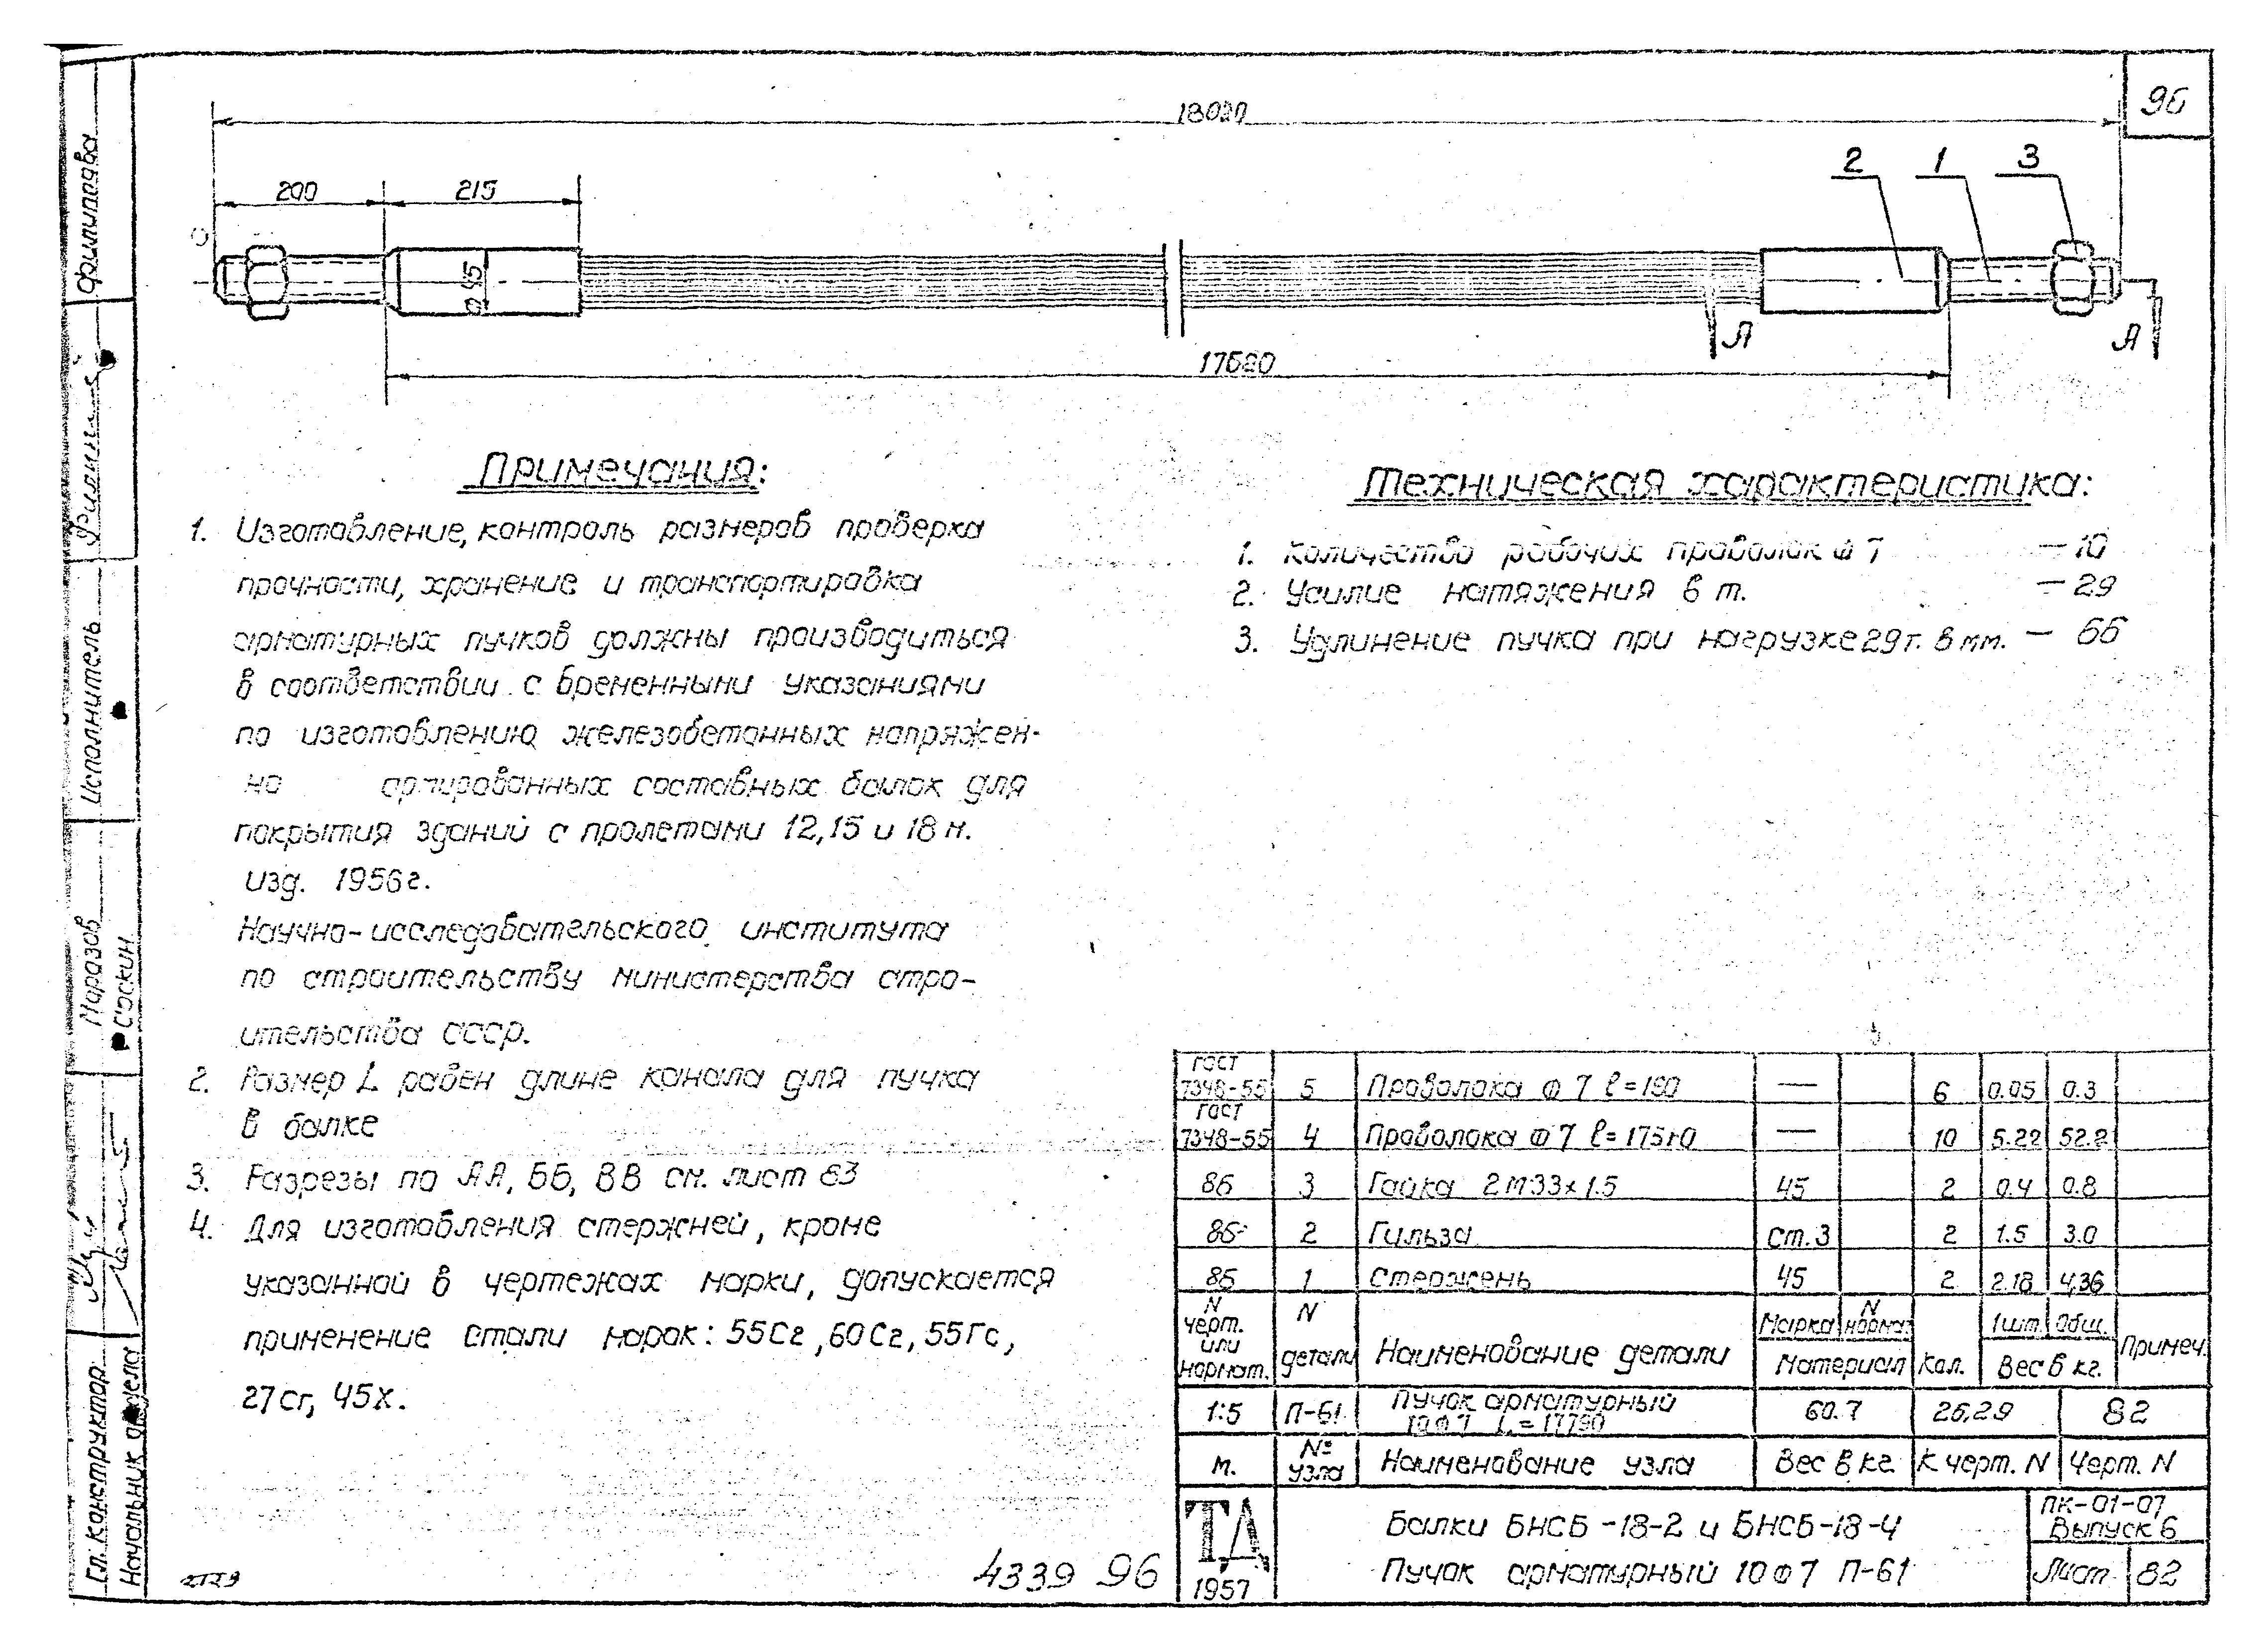 96
18020
200
215
2
1
3
ø45
А
А
17620
Примечания:
1. Изготовление, контроль размеров проверка
прочности, хранение и транспортировка
арматурных пучков должны производиться
в соответствии с временными указаниями
по изготовлению железобетонных напряжен-
но армированных составных балок для
покрытия зданий с пролетами 12,15 и 18 м.
изд. 1956г.
Научно-исследовательского института
по строительству министерства стро-
ительства СССР.
2. Размер L равен длине канала для пучка
в балке
3. Разрезы по АА, ББ, ВВ см. лист 83
4. Для изготовления стержней, кроме
указанной в чертежах марки, допускается
применение стали марок: 55Сг, 60Сг, 55Гс,
27сг, 45х.
Техническая характеристика:
1. Количество рабочих проволок ф 7 — 10
2. Усилие натяжения в т. — 29
3. Удлинение пучка при нагрузке 29т. в мм. — 66
ГОСТ 7348-55 5 Проволока ф 7 ℓ=190 — 6 0.05 0.3
ГОСТ 7348-55 4 Проволока ф 7 — 10 5.22 52.2
86 3 Гайка 2М33х1.5 45 2 0.4 0.8
86 2 Гильза Ст.3 2 1.5 3.0
86 1 Стержень 45 2 2.18 4,36
N черт. или нормат. N детали Наименование детали Марка N норма. Материал Кол. 1шт. Общ. Вес в кг. Примеч.
1:5 П-61 Пучок арматурный 10ф7 L=17790 60.7 26,29 82
м. № узла Наименование узла Вес в кг. К черт. N Черт. N
ТД
1957
Балки БНСБ-18-2 и БНСБ-18-4
Пучок арматурный 10ф7 П-61
ПК-01-07
Выпуск 6
Лист 82
4339 96
Филиппова
Исполнитель
Морозов
Соскин
Гл. конструктор
Начальник отдела